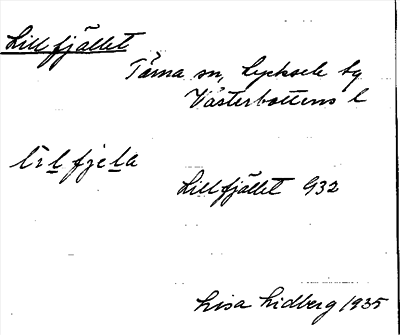 Lillfjället
Tärna sn, Lycksele tg
Västerbottens l
lil fjela
Lillfjället G32
Lisa Lidberg 1935